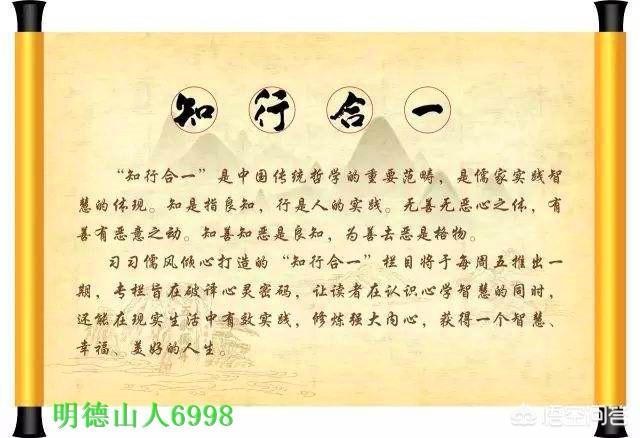 知行合一
“知行合一”是中国传统哲学的重要范畴，是儒家实践智
慧的体现。知是指良知，行是人的实践。无善无恶心之体，有
善有恶意之动。知善知恶是良知，为善去恶是格物。
习习儒风倾心打造的“知行合一”栏目将于每周五推出一
期，专栏旨在破译心灵密码，让读者在认识心学智慧的同时，
还能在现实生活中有效实践，修炼强大内心，获得一个智慧、
幸福、美好的人生。
明德山人6998
悟空问答